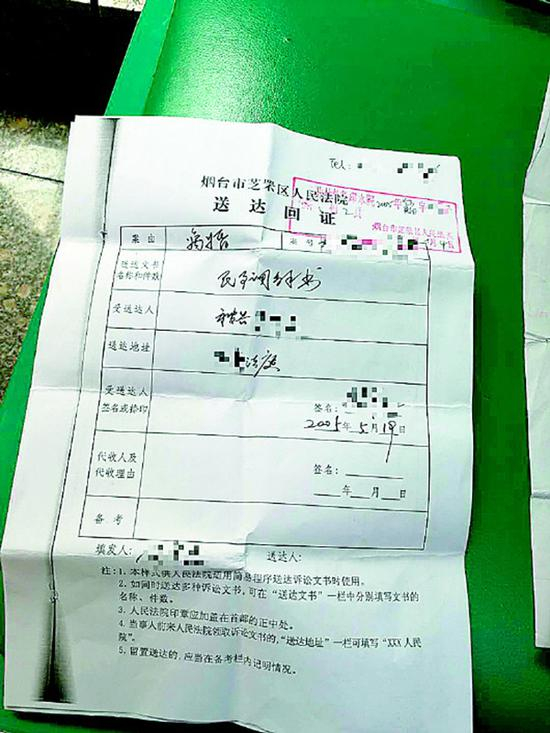 Tel:
烟台市芝罘区人民法院
送达回证
烟台市芝罘区人民法院
案由 离婚 案号
送达文书
名称和件数 民事调解书
受送达人
送达地址 法庭
受送达人
签名或捺印 签名:
2005年5月19日
代收人及
代收理由 签名:
年 月 日
备考
填发人: 送达人:
注:1. 本样式供人民法院适用简易程序送达诉讼文书时使用。
2. 如同时送达多种诉讼文书,可在“送达文书”一栏中分别填写文书的
名称、件数。
3. 人民法院印章应加盖在首部的正中处。
4. 当事人前来人民法院领取诉讼文书的,“送达地址”一栏可填写“XXX人民
院”。
5. 留置送达的,应当在备考栏内记明情况。